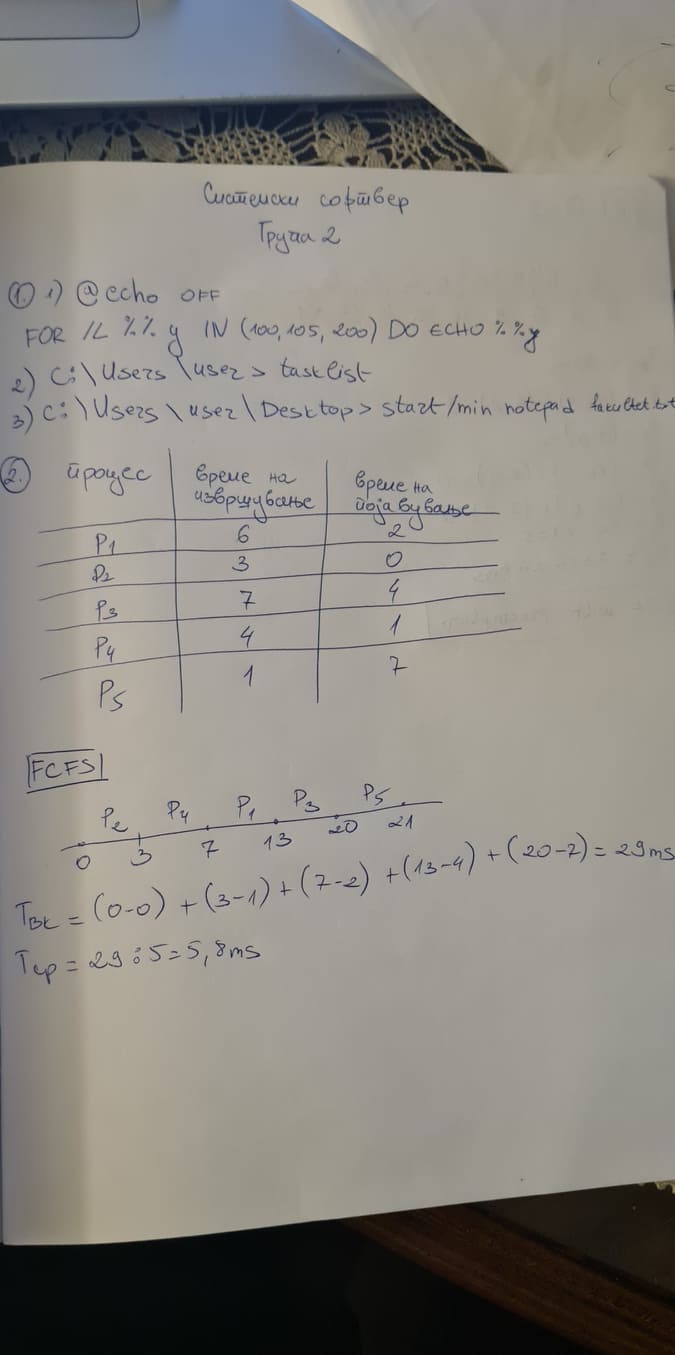 Системски софтвер
Група 2
1. 1) @echo OFF
FOR /L %% y IN (100,105,200) DO ECHO %%y
2) C:\Users\user> tasklist
3) C:\Users\user\Desktop> start/min notepad fakultet.txt
2. процес време на извршување време на појавување
P1 6 2
P2 3 0
P3 7 4
P4 4 1
P5 1 7
FCFS
P2 P4 P1 P3 P5
0 3 7 13 20 21
Tвк = (0-0) + (3-1) + (7-2) + (13-4) + (20-7) = 29ms
Tср = 29:5=5,8ms